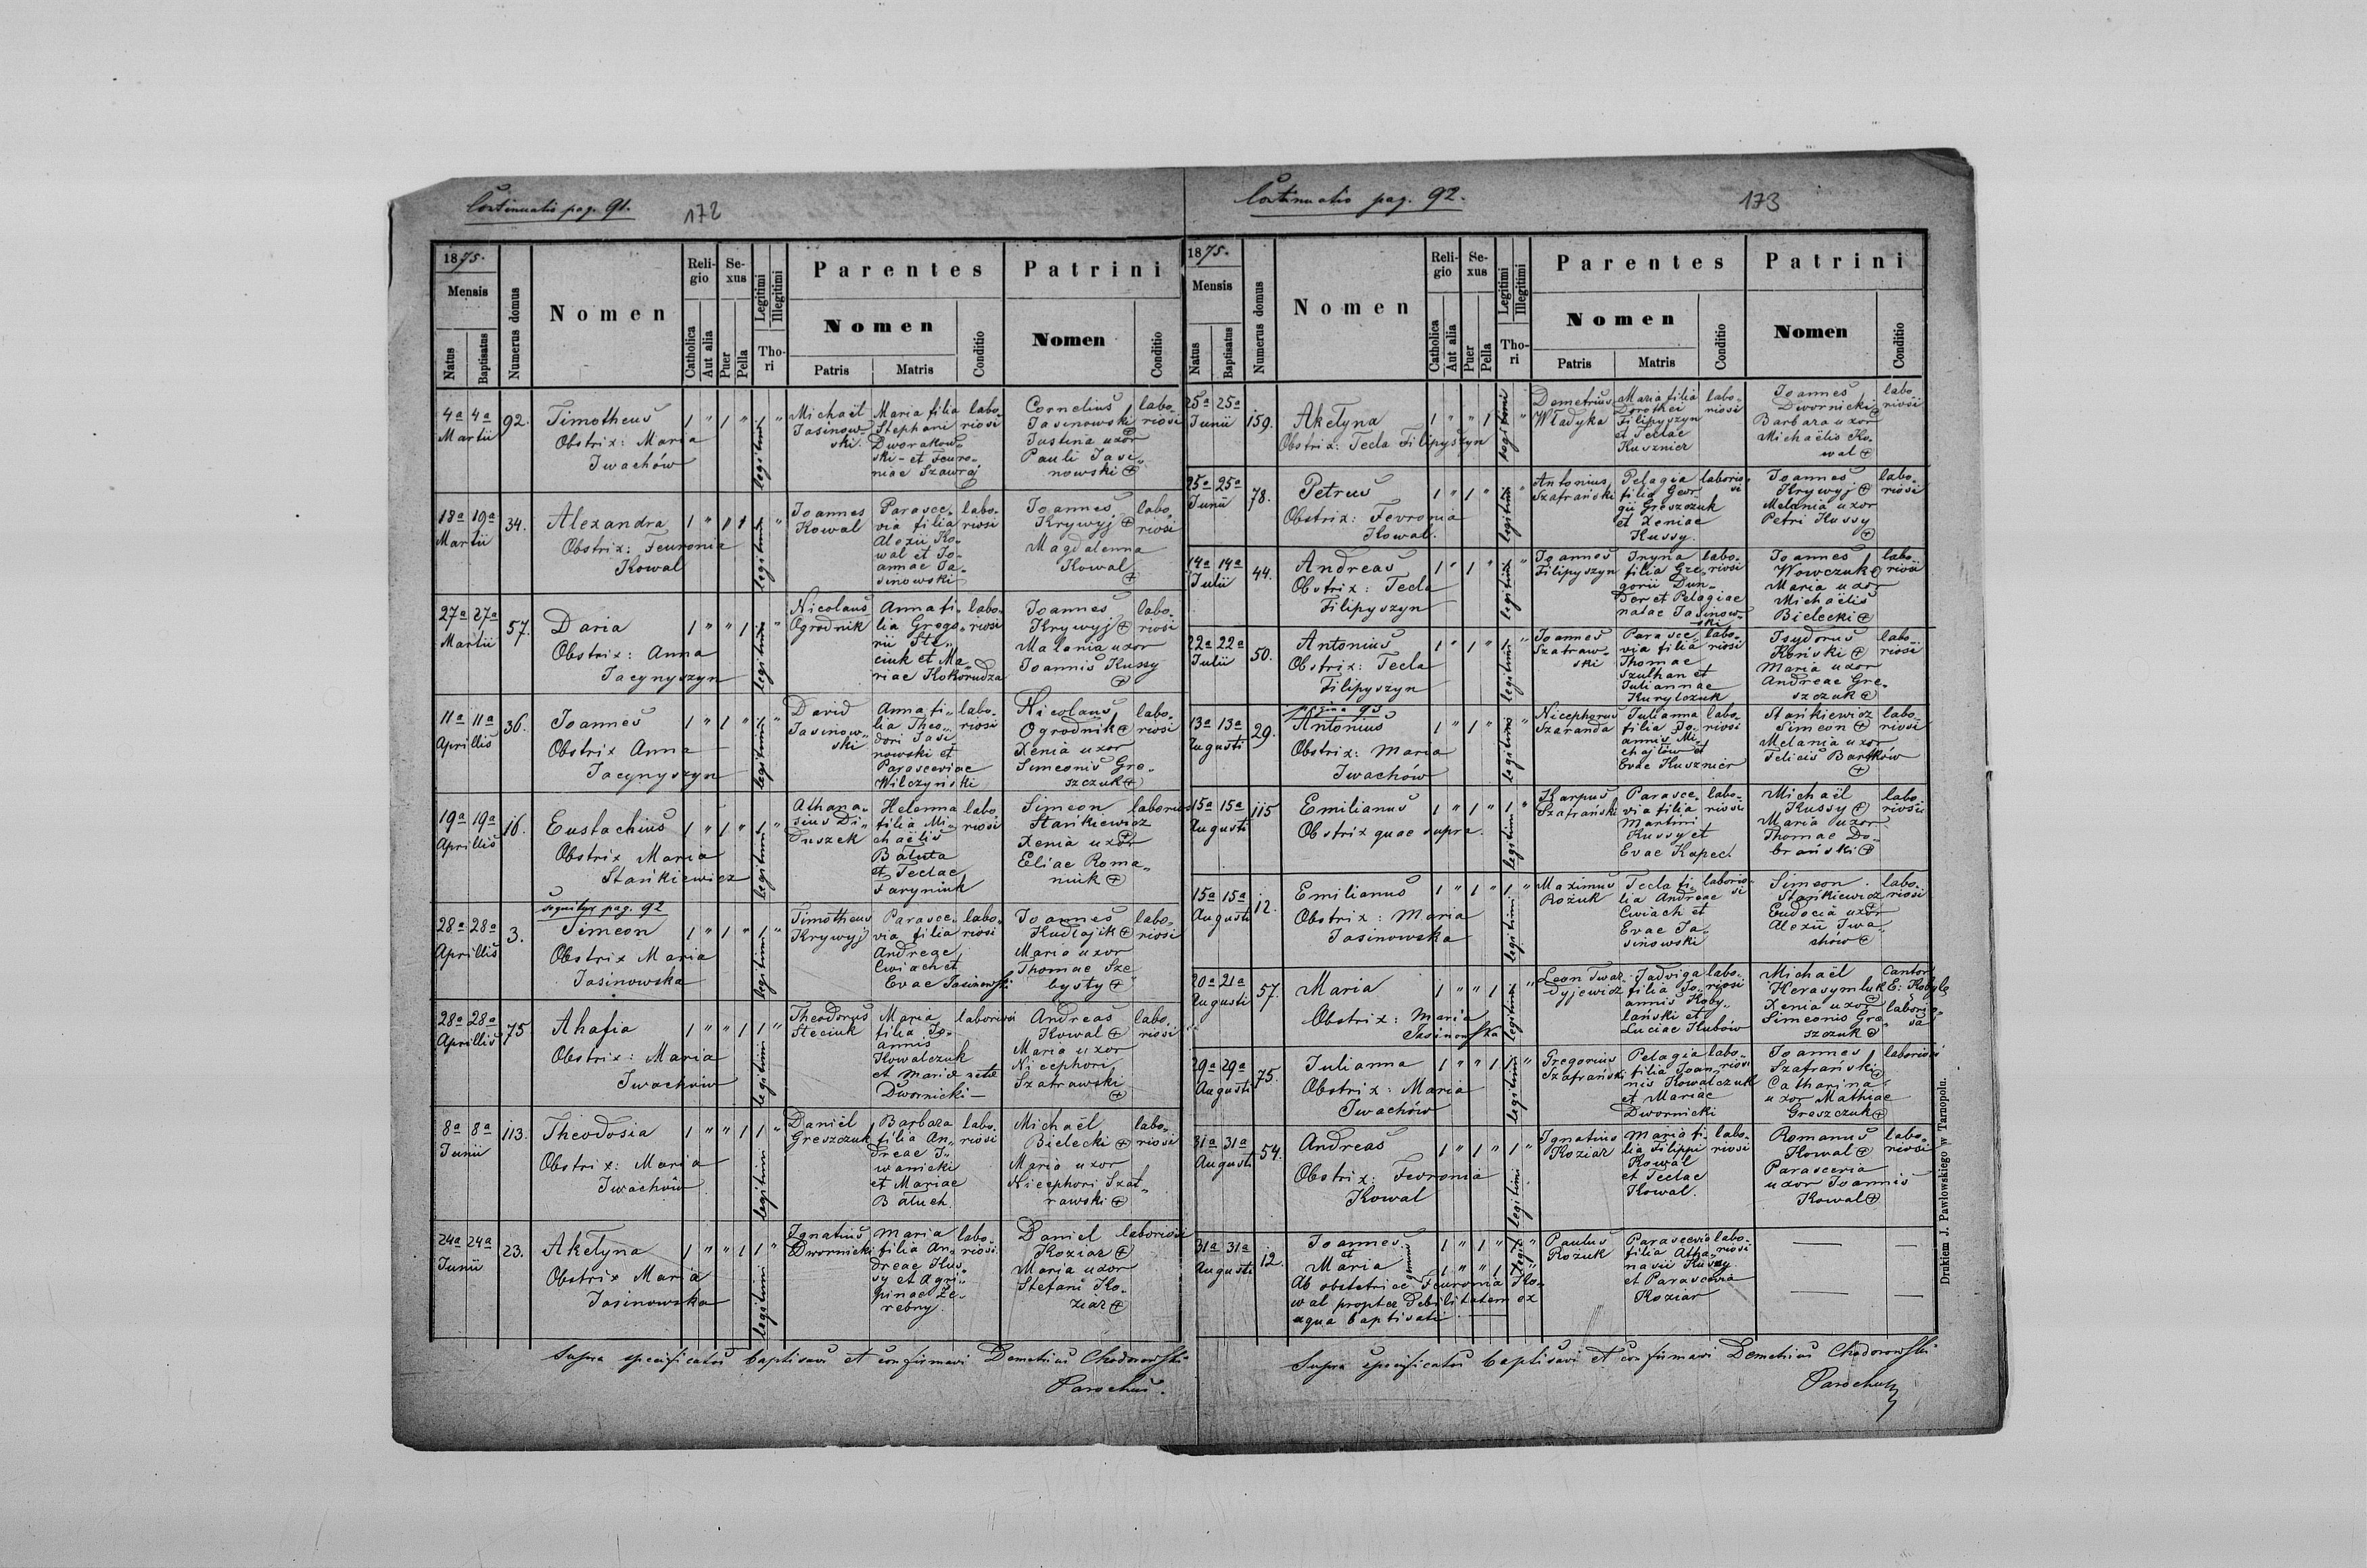 Continuatio pag. 91.
172
1875.
Mensis
Natus
Baptisatus
Numerus domus
Nomen
Religio
Catholica
Aut alia
Sexus
Puer
Pella
Legitimi
Illegitimi
Thori
Parentes
Nomen
Patris
Matris
Conditio
Patrini
Nomen
Conditio
4a 4a
Martii
92.
Timotheus
Obstrix: Maria
Iwachów
1 " 1 " 1 "
legitimi
Michaël
Jasinow-
ski.
Maria filia
Stephani
Dworakow-
ski - et Feuro-
niae Szawraj
labo-
riosi
Cornelius
Jasinowski
Justina uxor
Pauli Jasi-
nowski
labo-
riosi
18a 19a
Martii
34.
Alexandra
Obstrix: Feuronia
Kowal
legitimi
Joannes
Kowal
Parasce-
via filia
Alexii Ko-
wal et Jo-
annae Ja-
sinowski
labo-
riosi
Joannes
Krywyj
Magdalenna
Kowal
labo-
riosi
27a 27a
Martii
57.
Daria
Obstrix: Anna
Jacynyszyn
1 " " 1 "
legitimi
Nicolaus
Ogrodnik
Anna fi-
lia Grego-
rii Ste-
ciuk et Ma-
riae Kokorudza
labo-
riosi
Joannes
Krywyj
Malania uxor
Joannis Kussy
labo-
riosi
11a 11a
Aprillis
36.
Joannes
Obstrix Anna
Jacynyszyn
1 " 1 "
legitimi
David
Jasinow-
ski
Anna fi-
lia Theo-
dori Jasi
nowski et
Parasceviae
Wilczyński
labo-
riosi
Nicolaus
Ogrodnik
Xenia uxor
Simeonis Gre-
szczuk
labo-
riosi
19a 19a
Aprillis
16.
Eustachius
Obstrix Maria
Stańkiewicz
1 " 1 " 1 "
legitimi
Athana-
sius Di-
duszek
Helenna
filia Mi-
chaëlis
Batuta
et Teclae
Faryniuk
labo
riosi
Simeon
Stańkiewicz
Xenia uxor
Eliae Roma-
niuk
laboriosi
sequitur pag. 92
28a 28a
Aprillis
3.
Simeon
Obstrix Maria
Jasinowska
1 " 1 " 1 "
legitimi
Timotheus
Krywyj
Parasce-
via filia
Andreae
Cwiach et
Evae Jasinowski
labo-
riosi
Joannes
Kudlajik
Maria uxor
Thomae Sze
bysty
labo-
riosi
28a 28a
Aprillis
75
Ahafia
Obstrix: Maria
Iwachów
1 " " 1 1 "
legitimi
Theodorus
Steciuk
Maria
filia Jo-
annis
Kowalczuk
et Mariæ natæ
Dwornicki -
laboriosi
Andreas
Kowal
Maria uxor
Nicephori
Szatrawski
labo-
riosi
8a 8a
Junii
113.
Theodosia
Obstrix: Maria
Iwachów
1 " " 1 1 "
legitimi
Daniël
Greszczuk
Barbara
filia An-
dreae I-
wanicki
et Mariae
Batuch
labo-
riosi
Michaël
Bielecki
Maria uxor
Nicephori Szat-
rawski
labo-
riosi
24a 24a
Junii
23.
Akelyna
Obstrix Maria
Jasinowska
1 " " 1 1 "
legitimi
Ignatius
Dwornicki
Maria
filia An-
dreae Kus-
sy et Agri-
pinae Że-
rebny.
labo-
riosi.
Daniel
Koziar
Maria uxor
Stefani Ko-
ziar
laboriosi
Supra specificatos baptisavi et confirmavi Demetrius Chodorowski
Parochus.
Continuatio pag. 92.
173
1875.
Mensis
Natus
Baptisatus
Numerus domus
Nomen
Religio
Catholica
Aut alia
Sexus
Puer
Pella
Legitimi
Illegitimi
Thori
Parentes
Nomen
Patris
Matris
Conditio
Patrini
Nomen
Conditio
25a 25a
Junii
159.
Akelyna
Obstrix: Tecla Filipyszyn
1 " " 1 "
legitimi
Demetrius
Władyka
Maria filia
Dorothei
Filipyszyn
et Teclae
Kusznier
labo-
riosi
Joannes
Dwornicki
Barbara uxor
Michaëlis Ko-
wal
labo
riosi
25a 25a
Junii
78.
Petrus
Obstrix: Fevronia
Kowal.
1 " 1 " "
legitimi
Antonius
Szafrański
Pelagia
filia Geor-
gii Greszczuk
et Xeniae
Kussy.
laborio-
si
Joannes
Krywyj
Melania uxor
Petri Kussy
labo-
riosi
14a 14a
Julii
44.
Andreas
Obstrix: Tecla
Filipyszyn
1 " 1 " "
legitimi
Joannes
Filipyszyn
Iryna
filia Gre-
gorii Dun-
der et Pelagiae
natae Jasinow-
ski
labo-
riosi
Joannes
Wowczuk
Maria uxor
Michaëlis
Bielecki
labo-
riosi
22a 22a
Julii
50.
Antonius
Obstrix: Tecla
Filipyszyn
1 " 1 " "
legitimi
Joannes
Szatraw-
ski
Parasce-
via filia
Thomae
Szulhan et
Juliannae
Kurylczuk
labo-
riosi
Isydorus
Koński
Maria uxor
Andreae Gre-
szczuk
labo-
riosi
pagina 93
13a 13a
Augusti
29.
Antonius
Obstrix: Maria
Iwachów
1 " 1 " "
legitimi
Nicephorus
Szaranda
Julianna
filia Jo-
annis Mi-
chajłów et
Evae Kusznier
labo-
riosi
Stańkiewicz
Simeon
Melania uxor
Felicis Bartków
labo-
riosi
15a 15a
Augusti
115
Emilianus
Obstrix quae supra.
1 " 1 " 1 "
legitimi
Karpus
Szafrański
Parasce-
via filia
Martini
Kussy et
Evae Kapec.
labo-
riosi
Michaël
Kussy
Maria uxor
Thomae Do-
brański
labo-
riosi
15a 15a
Augusti
12.
Emilianus
Obstrix: Maria
Jasinowska
1 " 1 " 1 "
legitimi
Maximus
Rożuk
Tecla fi-
lia Andreae
Cwiach et
Evae Ja-
sinowski
laborio-
si
Simeon
Stańkiewicz
Eudocia uxor
Alexii Iwa-
chów
labo-
riosi
20a 21a
Augusti
57.
Maria
Obstrix: Maria
Jasinowska
1 " " 1 "
legitimi
Leon Twar-
dyjewicz
Jadviga
filia Jo-
annis Koby-
lański et
Luciae Kubów
labo-
riosi
Michaël
Herasymluk
Xenia uxor
Simeonis Gre-
szczuk
Cantor
E: Kobyla
laborio-
sa
29a 29a
Augusti
75.
Julianna
Obstrix: Maria
Iwachów
1 " " 1 1 "
legitimi
Gregorius
Szafrański
Pelagia
filia Joan-
nis Kowalczuk
et Mariae
Dwornicki
labo-
riosi
Joannes
Szafrański
Catharina
uxor Mathiae
Greszczuk
laboriosi
31a 31a
Augusti
54.
Andreas
Obstrix: Fevronia
Kowal
1 " 1 " 1 "
legitimi
Ignatius
Koziar
Maria fi-
lia Filippi
Kowal
et Teclae
Kowal.
labo-
riosi
Romanus
Kowal
Parascevia
uxor Joannis
Kowal
labo-
riosi
31a 31a
Augusti
12.
Joannes
et
Maria
gemini
Ab obstetrice Feuronia Ko-
wal propter debilitatem ex
aqua baptisati
legit
Paulus
Rożuk
Parascevia
filia Atha-
nasii Kussy
et Parascevia
Koziar
labo-
riosi
Supra specificatos baptisavi et confirmavi Demetrius Chodorowski
Parochus
Drukiem J. Pawłowskiego w Tarnopolu.